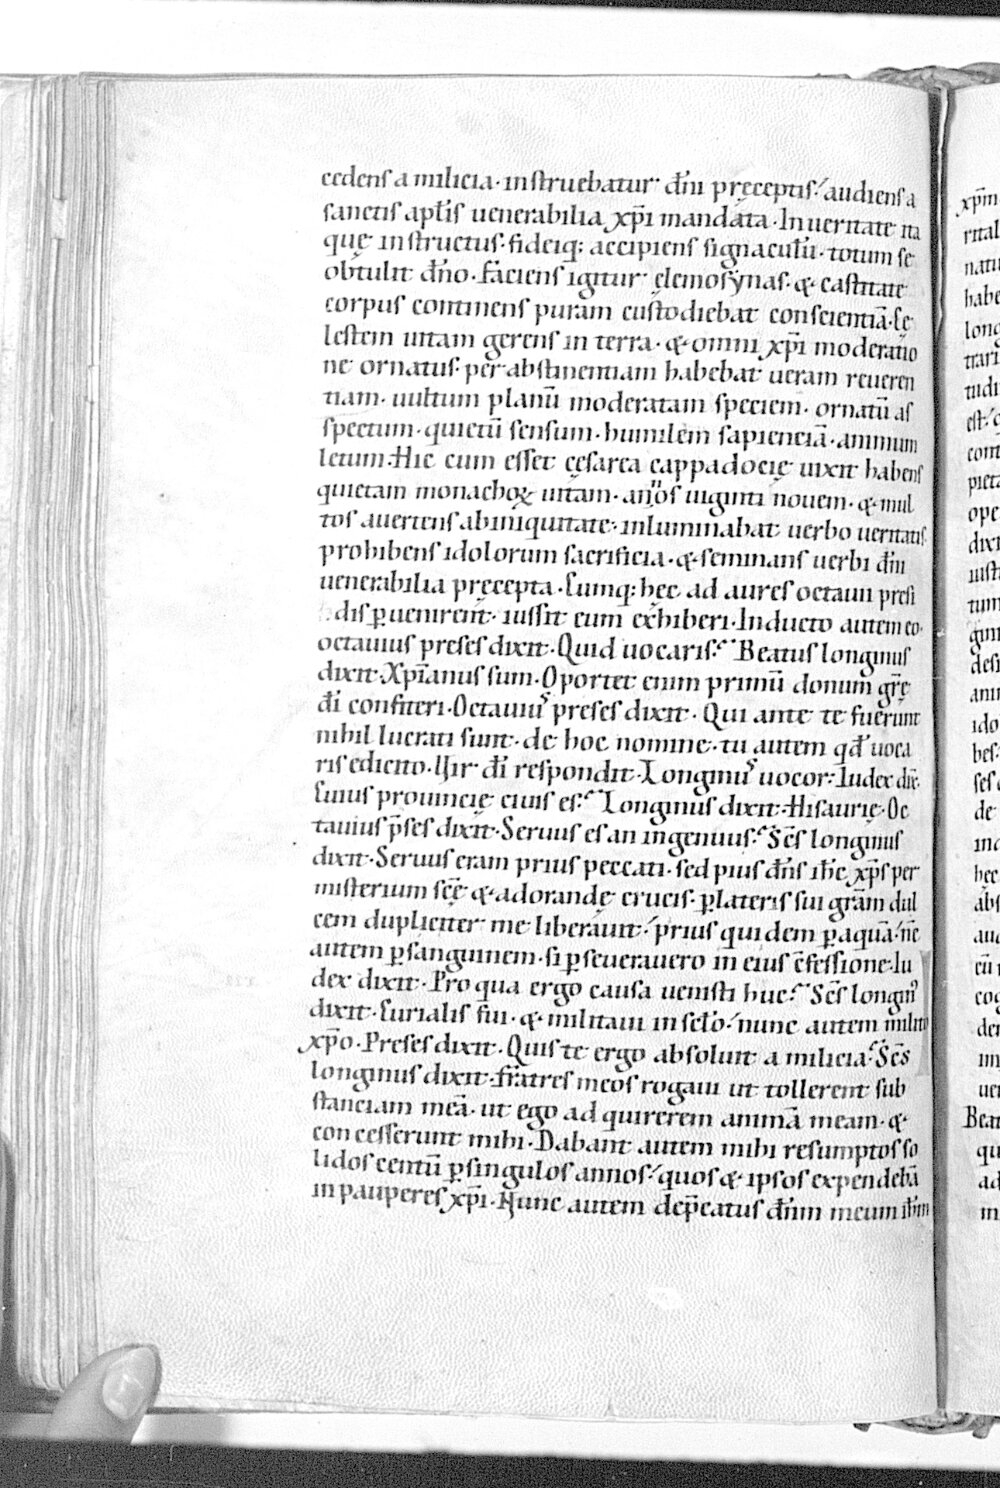 cedens a milicia· instruebatur dn̄i pręceptis·' audiens a
sanctis apl̄is uenerabilia xp̄i mandata· In ueritate ita
quę instructus· fideiq; accipiens signaculū· totum se
obtulit dn̄o· Faciens igitur ęlemosynas· & castitate
corpus continens puram custodiebat conscientiā· Cę
lestem uitam gerens in terra· & omni xp̄i moderatio
ne ornatus· per abstinentiam habebat ueram reueren
tiam· uultum planū moderatam speciem· ornatū as
spectum· quietū sensum· humilem sapienciā· animum
letum· Hic cum esset cęsarea cappadocię uixit habens
quietam monachoꝝ uitam· annos uiginti nouem· & mul
tos auertens ab iniquitate· inluminabat uerbo ueritatis·
prohibens idolorum sacrificia· & seminans uerbi dn̄i
uenerabilia pręcepta· Cumq; hęc ad aures octauii presi
dis ꝑuenirent· iussit eum exhiberi· Inducto autem eo·
octauius preses dixit· Quid uocaris? Beatus longinus
dixit· Xp̄ianus sum· Oportet enim primū donum gr̄ę
dī confiteri· Octauiuꝰ preses dixit· Qui ante te fuerunt
nihil lucrati sunt· de hoc nomine· tu autem qd̄ uoca
ris edicito· Uir dī respondit· Longinuꝰ uocor· Iudex dix̄·
Cuius prouincię ciuis es? Longinus dixit· Hisaurię· Oc
tauius p̄ses dixit· Seruus es an ingenuus? Sc̄s longinus
dixit· Seruus eram prius peccati· sed pius dn̄s ih̄c xp̄s per
misterium sc̄ę & adorandę crucis· ꝑ lateris sui gr̄am dul
cem dupliciter me liberauit·' prius quidem ꝑ aquā·' nc̄
autem ꝑ sanguinem· si ꝑseuerauero in eius c̄fessione· Iu
dex dixit· Pro qua ergo causa uenisti huc? Sc̄s longinꝰ
dixit· Curialis fui· & militaui in sclō·' nunc autem milito
xp̄o· Preses dixit· Quis te ergo absoluit a milicia? Sc̄s
longinus dixit· Fratres meos rogaui ut tollerent sub
stanciam meā· ut ego adquirerem animā meam· &
concesserunt mihi· Dabant autem mihi resumptos so
lidos centū ꝑ singulos annos·' quos & ipsos expendebā
in pauperes xp̄i· Nunc autem dep̄catus dn̄m meum ih̄m